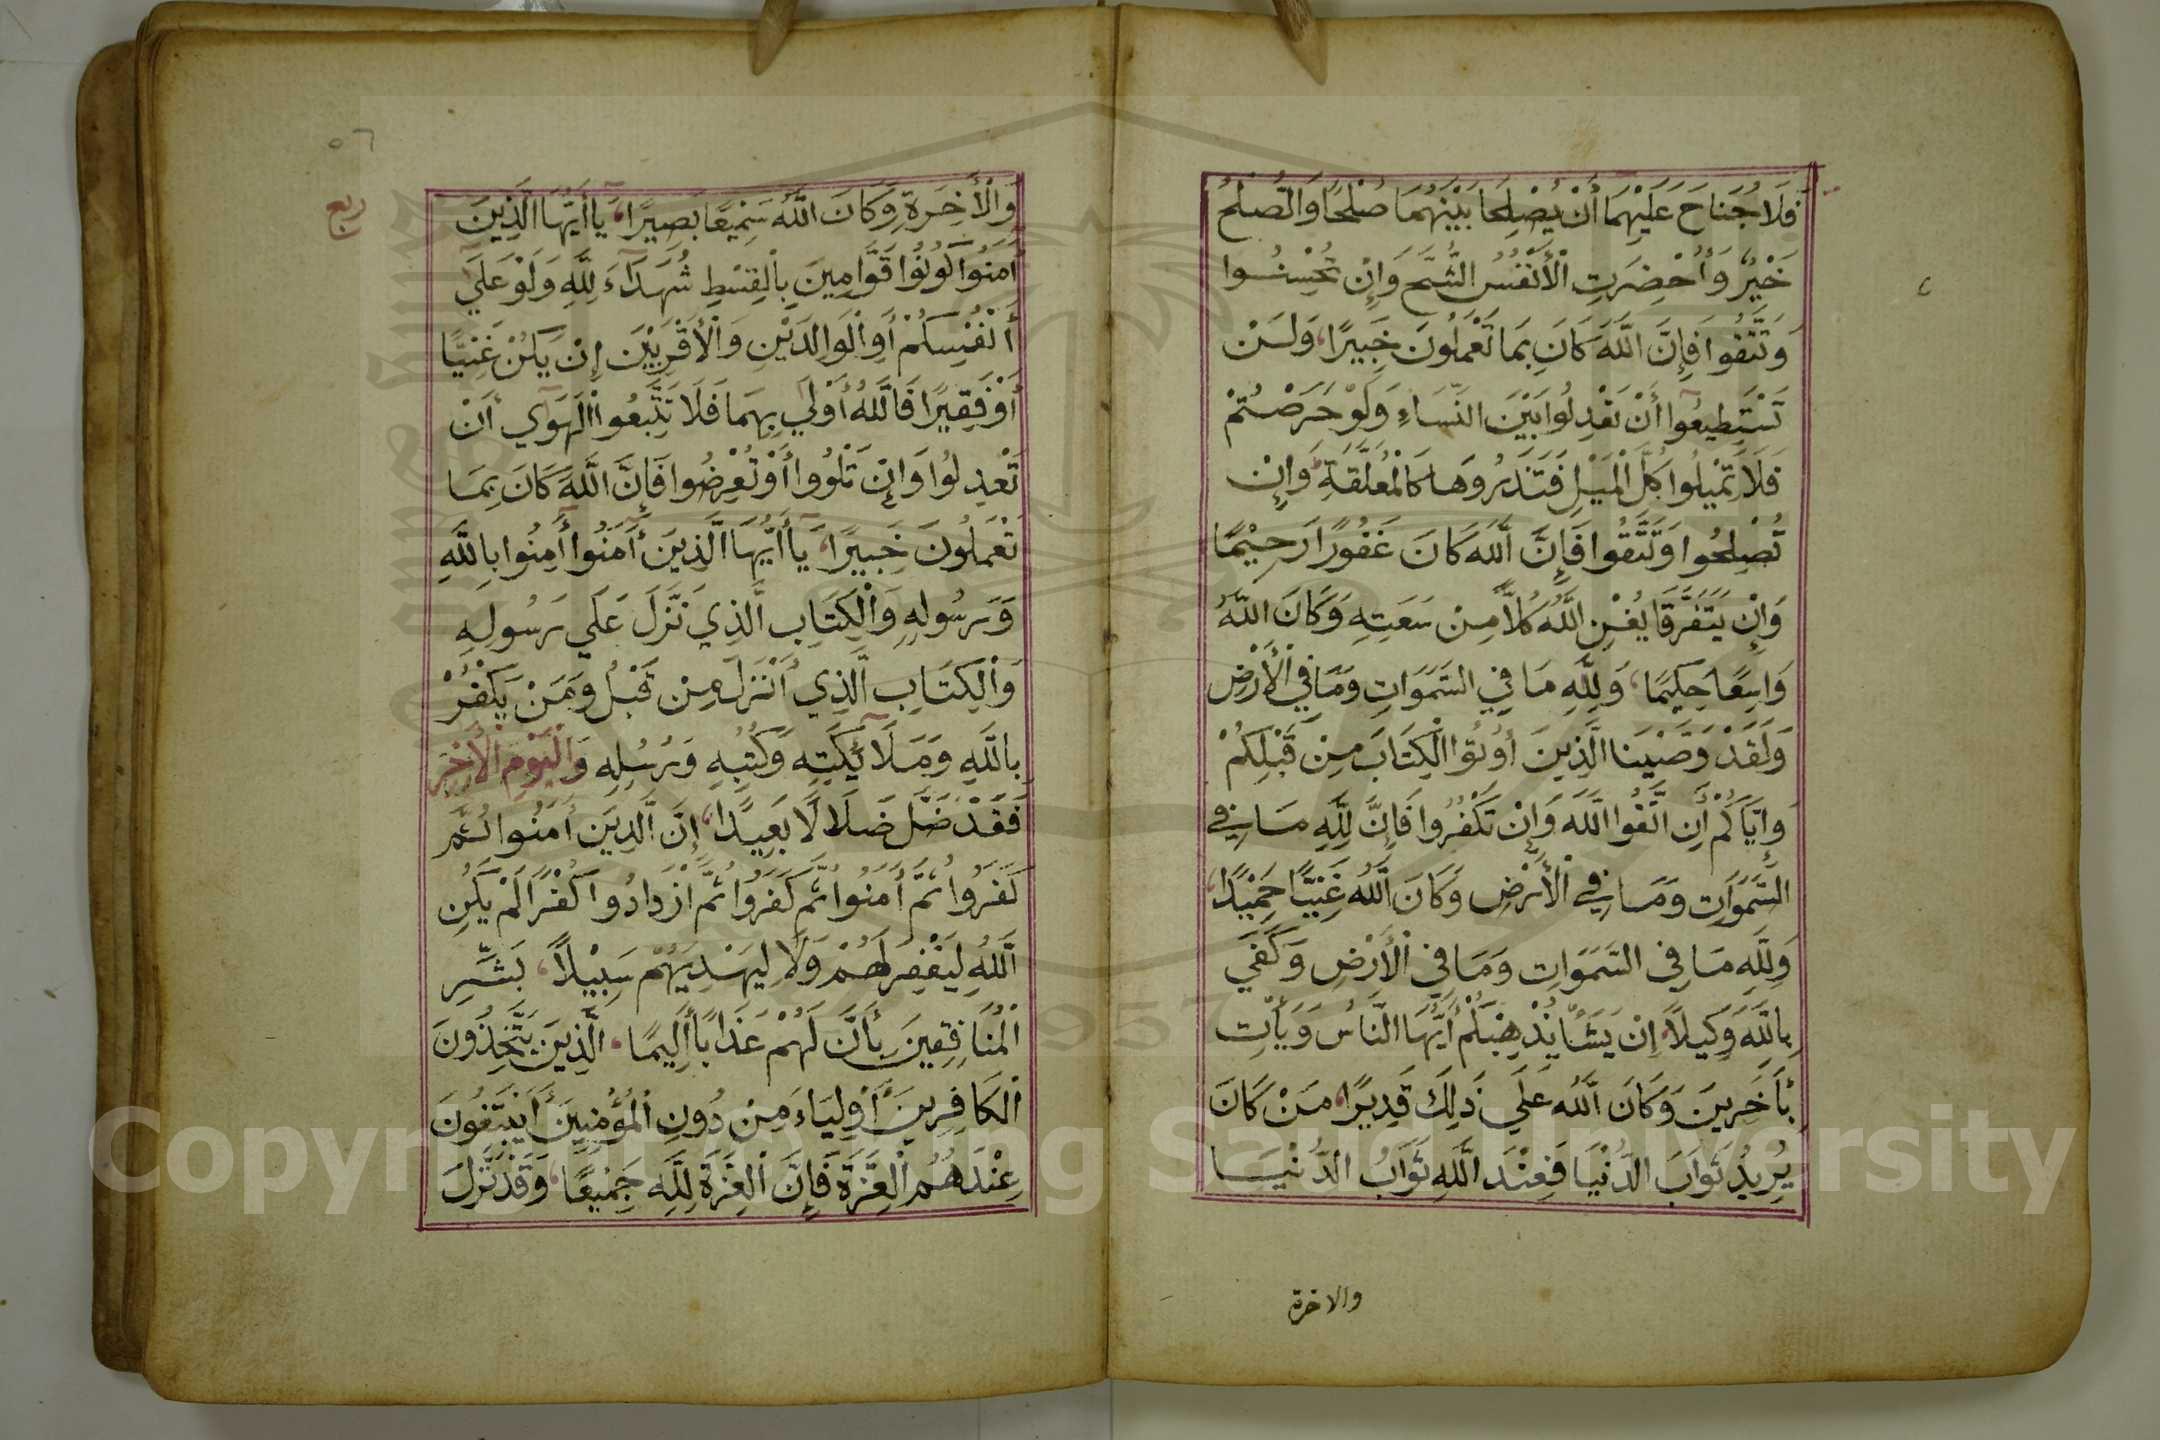 فَلَا جُنَاحَ عَلَيْهِمَا أَنْ يُصْلِحَا بَيْنَهُمَا صُلْحًا وَالصُّلْحُ
خَيْرٌ وَأُحْضِرَتِ الْأَنْفُسُ الشُّحَّ وَإِنْ تُحْسِنُوا
وَتَتَّقُوا فَإِنَّ اللَّهَ كَانَ بِمَا تَعْمَلُونَ خَبِيرًا، وَلَنْ
تَسْتَطِيعُوا أَنْ تَعْدِلُوا بَيْنَ النِّسَاءِ وَلَوْ حَرَصْتُمْ
فَلَا تَمِيلُوا كُلَّ الْمَيْلِ فَتَذَرُوهَا كَالْمُعَلَّقَةِ وَإِنْ
تُصْلِحُوا وَتَتَّقُوا فَإِنَّ اللَّهَ كَانَ غَفُورًا رَحِيْمًا
وَإِنْ يَتَفَرَّقَا يُغْنِ اللَّهُ كُلًّا مِنْ سَعَتِهِ وَكَانَ اللَّهُ
وَاسِعًا حَكِيمًا، وَلِلَّهِ مَا فِي السَّمَوَاتِ وَمَا فِي الْأَرْضِ
وَلَقَدْ وَصَّيْنَا الَّذِينَ أُوتُوا الْكِتَابَ مِنْ قَبْلِكُمْ
وَإِيَّاكُمْ أَنِ اتَّقُوا اللَّهَ وَإِنْ تَكْفُرُوا فَإِنَّ لِلَّهِ مَا فِي
السَّمَوَاتِ وَمَا فِي الْأَرْضِ وَكَانَ اللَّهُ غَنِيًّا حَمِيْدًا،
وَلِلَّهِ مَا فِي السَّمَوَاتِ وَمَا فِي الْأَرْضِ وَكَفَي
بِاللَّهِ وَكِيلًا، إِنْ يَشَأْ يُذْهِبْكُمْ أَيُّهَا النَّاسُ وَيَأْتِ
بِأَخَرِينَ وَكَانَ اللَّهُ عَلَي ذَلِكَ قَدِيرًا، مَنْ كَانَ
يُرِيدُ ثَوَابَ الدُّنْيَا فَعِنْدَ اللَّهِ ثَوَابُ الدُّنْيَا
والاخرة
٥٦
ربع
وَالْأَخِرَةِ وَكَانَ اللَّهُ سَمِيْعًا بَصِيرًا، يَا أَيُّهَا الَّذِينَ
أَمَنُوا كُونُوا قَوَّامِينَ بِالْقِسْطِ شُهَدَآءَ لِلَّهِ وَلَوْ عَلَي
أَنْفُسِكُمْ أَوِ الْوَالِدَيْنِ وَالْأَقْرَبِيْنَ إِنْ يَكُنْ غَنِيًّا
أَوْ فَقِيرًا فَاللَّهُ أَوْلَي بِهِمَا فَلَا تَتَّبِعُوا الْهَوَي أَنْ
تَعْدِلُوا وَإِنْ تَلْوُوا أَوْ تُعْرِضُوا فَإِنَّ اللَّهَ كَانَ بِمَا
تَعْمَلُونَ خَبِيرًا، يَا أَيُّهَا الَّذِينَ أَمَنُوا أَمِنُوا بِاللَّهِ
وَرَسُولِهِ وَالْكِتَابِ الَّذِي نَزَّلَ عَلَي رَسُولِهِ
وَالْكِتَابِ الَّذِي أَنْزَلَ مِنْ قَبْلُ وَمَنْ يَكْفُرْ
بِاللَّهِ وَمَلَآئِكَتِهِ وَكُتُبِهِ وَرُسُلِهِ وَالْيَوْمِ الْأَخِرِ
فَقَدْ ضَلَّ ضَلَالًا بَعِيدًا، إِنَّ الَّذِينَ أَمَنُوا ثُمَّ
كَفَرُوا ثُمَّ أَمَنُوا ثُمَّ كَفَرُوا ثُمَّ ازْدَادُوا كُفْرًا لَمْ يَكُنِ
اللَّهُ لِيَغْفِرَ لَهُمْ وَلَا لِيَهْدِيَهُمْ سَبِيْلًا، بَشِّرِ
الْمُنَافِقِينَ بِأَنَّ لَهُمْ عَذَابًا أَلِيمًا، الَّذِينَ يَتَّخِذُونَ
الْكَافِرِينَ أَوْلِيَاءَ مِنْ دُونِ الْمُؤْمِنِينَ أَيَبْتَغُونَ
عِنْدَهُمُ الْعِزَّةَ فَإِنَّ الْعِزَّةَ لِلَّهِ جَمِيْعًا، وَقَدْ نَزَّلَ
Copyright © King Saud University
1957